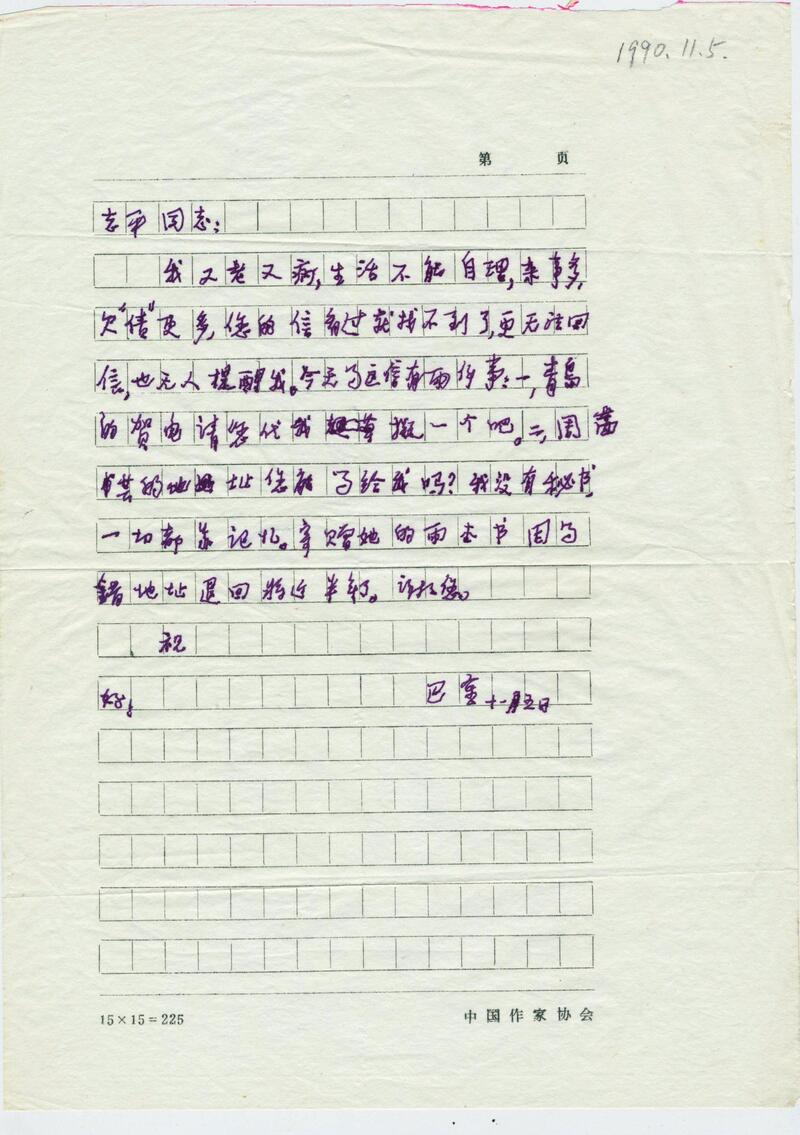 1990.11.5.
第 页
志平同志：
我又老又病，生活不能自理，杂事多，
欠“债”更多，您的信看过就找不到了，更无法回
信，也无人提醒我。今天写这信有两件事：一，青岛
的贺电请您代我草拟一个吧。二，周
芸的地址您能写给我吗？我没有秘书，
一切都靠记忆。寄赠她的两本书因写
错地址退回将近半年了。谢谢您。
祝
好！
巴金 十一月五日
15×15=225
中国作家协会